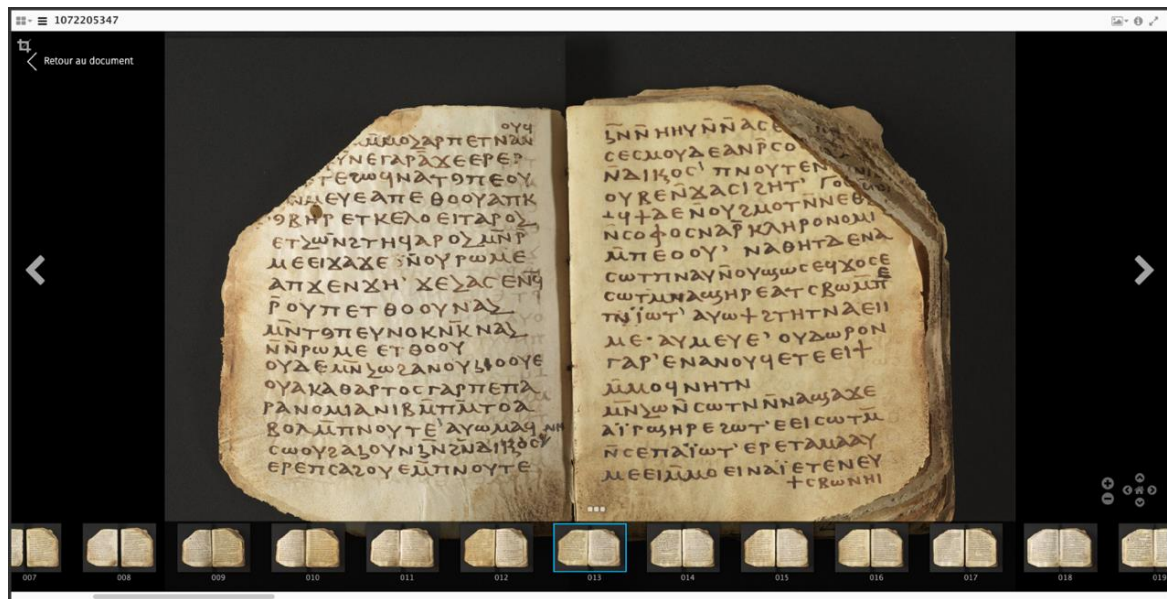 1072205347
Retour au document
ⲟⲩϥ
ⲙ̄ⲙⲟⲹⲁⲣⲡⲉⲧⲛⲁⲛ
ⲩⲛⲉⲅⲁⲣⲁ̄ϫⲉⲉⲣⲉ
ⲧⲉϩⲱϥⲛⲁⲧⳋⲡⲉⲟⲩ
ⲙⲉⲩⲉⲁⲡⲉⲑⲟⲟⲩⲁⲡⲕ
ⳋⲃⲏⲣⲉⲧⲕⲉⲗⲟⲉⲓⲧⲁⲣⲟⲹ
ⲉⲧⲹⲱ̄ⲛϩⲧⲏϥⲁⲣⲟⲹⲙⲛ̄ⲣ
ⲙⲉⲉⲓϫⲁϫⲉⲛ̄ⲟⲩⲣⲱⲙⲉ
ⲁⲡϫⲉⲛϫⲏ' ϫⲉⲹⲁⲥⲉⲛϥ̄
ⲣ̄ⲟⲩⲡⲉⲧⲑⲟⲟⲩⲛⲁⲹ
ⲙⲛ̄ⲧⳋⲡⲉⲩⲛⲟⲕⲛⲕ̄ⲛⲁⲹ
ⲛ̄ⲛ̄ⲣⲱⲙⲉⲉⲧⲑⲟⲟⲩ
ⲟⲩⲇⲉⲙⲛ̄ⲹⲱϩⲁⲛⲟⲩϩⲓⲟⲟⲩⲉ
ⲟⲩⲁⲕⲁⲑⲁⲣⲧⲟⲥⲅⲁⲣⲡⲉⲡⲁ
ⲣⲁⲛⲟⲙⲓⲁⲛⲓⲃⲙ̄ⲡⲙ̄ⲧⲟⲁ
ⲃⲟⲗⲙ̄ⲡⲛⲟⲩⲧⲉ'ⲁⲩⲱⲙⲁϥ
ⲥⲱⲟⲩϩⲁϧⲟⲩⲛϧⲛ̄ϩⲛ̄ⲇⲓⲕⲟⲥ
ⲉⲣⲉⲡⲥⲁϩⲟⲩⲉⲙ̄ⲡⲛⲟⲩⲧⲉ
ϧⲛ̄ⲛ̄ⲏⲏⲩⲛ̄ⲛ̄ⲁⲥⲉ
ⲥⲉⲥⲙⲟⲩⲇⲉⲁⲛⲣ̄ⲥⲟ
ⲛ̄ⲇⲓⲕⲟⲥ' ⲡⲛⲟⲩⲧⲉ
ⲟⲩⲃⲉⲛ̄ϫⲁⲥⲓϩⲏⲧ'
ϥϯⲇⲉⲛ̄ⲟⲩϩⲙⲟⲧⲛ̄ⲛⲉⲑ
ⲛ̄ⲥⲟⲫⲟⲥⲛⲁⲣ̄ⲕⲗⲏⲣⲟⲛⲟⲙⲓ
ⲙ̄ⲡⲉⲟⲟⲩ' ⲛⲁⲑⲏⲧⲇⲉⲛⲁ
ⲥⲱⲧⲡⲛⲁⲩⲛ̄ⲟⲩϣⲱⲥⲉϥϫⲟⲥⲉ
ⲥⲱⲧⲙⲛⲁϣⲏⲣⲉⲁⲧⲥⲃⲱⲙ̄ⲡ
ⲡⲓ̈ⲱⲧ' ⲁⲩⲱϯϩⲧⲏⲧⲛⲁⲉⲓⲓ
ⲙⲉ·ⲁⲩⲙⲉⲩⲉ' ⲟⲩⲇⲱⲣⲟⲛ
ⲅⲁⲣ'ⲉⲛⲁⲛⲟⲩϥⲉⲧⲉⲉⲓϯ
ⲙ̄ⲙⲟϥⲛⲏⲧⲛ
ⲙⲛ̄ⲹⲱⲛ̄ⲥⲱⲧⲛⲛ̄ⲛⲁϣⲁϫⲉ
ⲁⲓ̈ⲣϣⲏⲣⲉϩⲱⲧ'ⲉⲉⲓⲥⲱⲧⲙ̄
ⲛ̄ⲥⲉⲡⲁⲓ̈ⲱⲧ'ⲉⲣⲉⲧⲁⲙⲁⲁⲩ
ⲙⲉⲉⲓⲙ̄ⲙⲟⲉⲓⲛⲁⲓ̈ⲉⲧⲉⲛⲉⲩ
ϯⲥⲃⲱⲛⲏⲓ
007 008 009 010 011 012 013 014 015 016 017 018 019